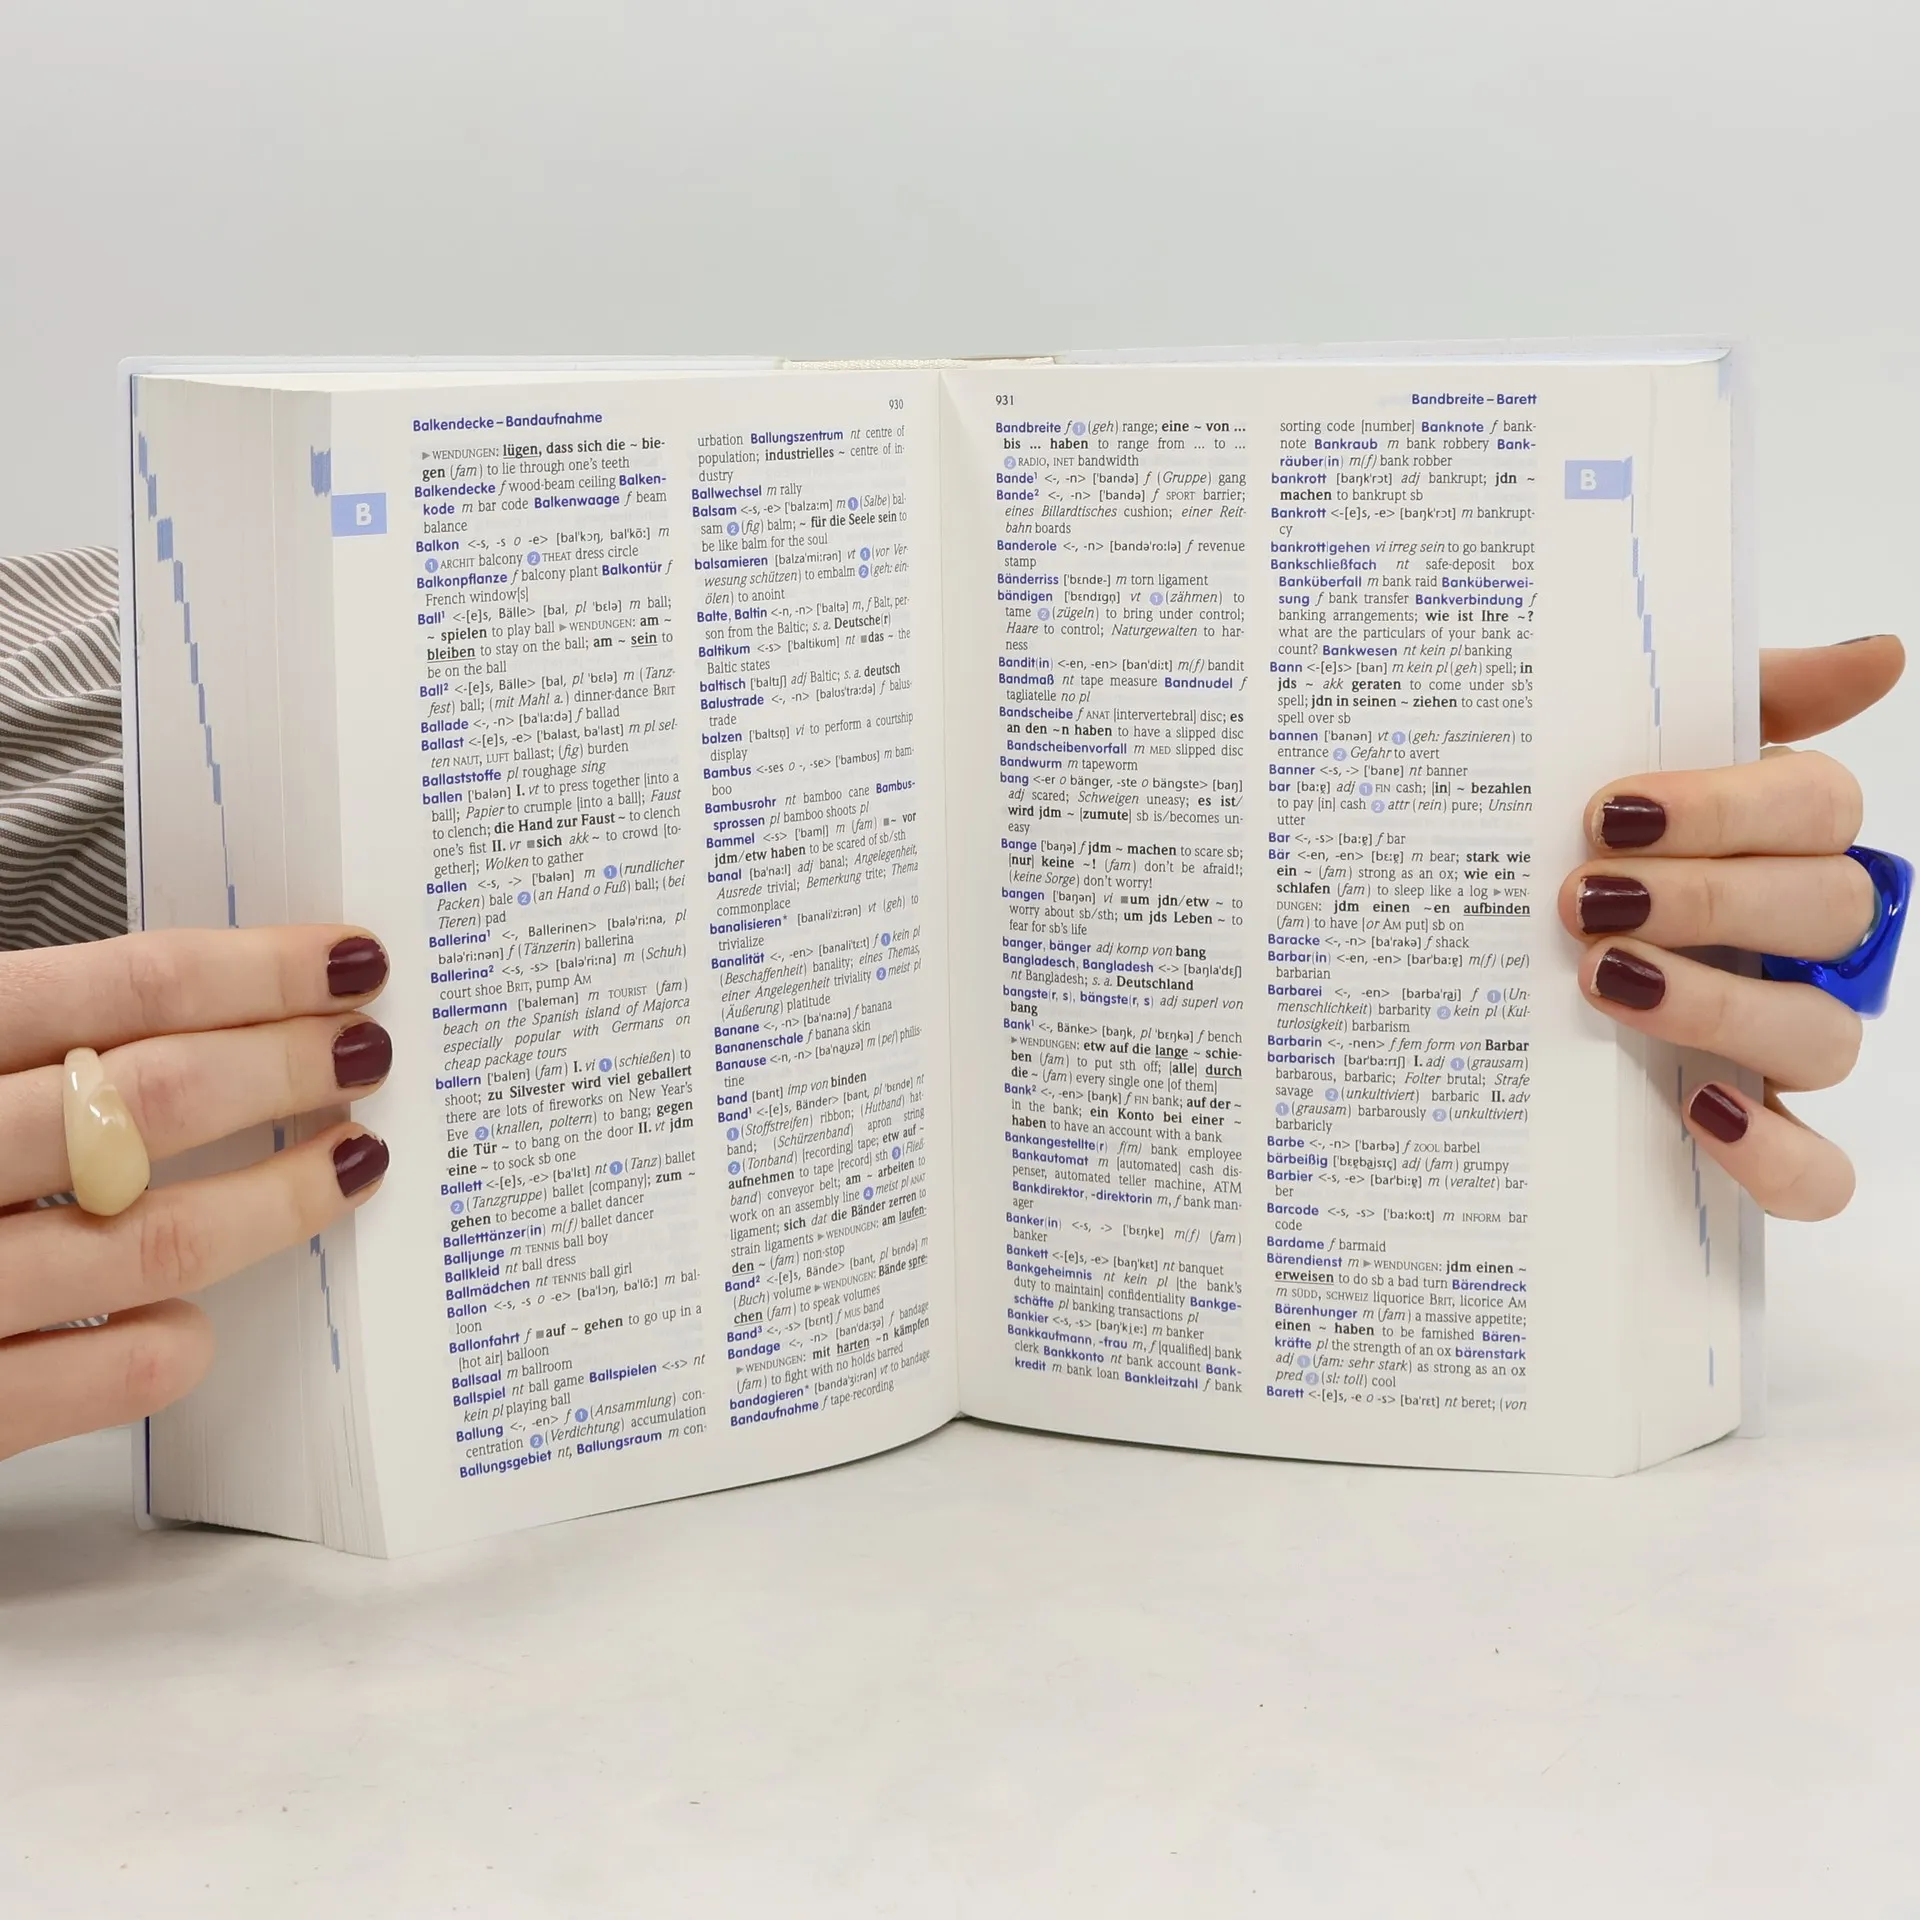 Balkendecke – Bandaufnahme
930
B
▶ WENDUNGEN: lügen, dass sich die ~ bie-
gen (fam) to lie through one's teeth
Balkendecke f wood-beam ceiling Balken-
kode m bar code Balkenwaage f beam
balance
Balkon <-s, -s o -e> [bal'kɔŋ, bal'kõ:] m
❶ ARCHIT balcony ❷ THEAT dress circle
Balkonpflanze f balcony plant Balkontür f
French window[s]
Ball¹ <-[e]s, Bälle> [bal, pl 'bɛlə] m ball;
~ spielen to play ball ▶ WENDUNGEN: am ~
bleiben to stay on the ball; am ~ sein to
be on the ball
Ball² <-[e]s, Bälle> [bal, pl 'bɛlə] m (Tanz-
fest) ball; (mit Mahl a.) dinner-dance BRIT
Ballade <-, -n> [ba'la:də] f ballad
Ballast <-[e]s, -e> ['balast, ba'last] m pl sel-
ten NAUT, LUFT ballast; (fig) burden
Ballaststoffe pl roughage sing
ballen ['balən] I. vt to press together [into a
ball]; Papier to crumple [into a ball]; Faust
to clench; die Hand zur Faust ~ to clench
one's fist II. vr ■sich akk ~ to crowd [to-
gether]; Wolken to gather
Ballen <-s, -> ['balən] m ❶ (rundlicher
Packen) bale ❷ (an Hand o Fuß) ball; (bei
Tieren) pad
Ballerina¹ <-, Ballerinen> [balə'ri:na, pl
balə'ri:nən] f (Tänzerin) ballerina
Ballerina² <-s, -s> [balə'ri:na] m (Schuh)
court shoe BRIT, pump AM
Ballermann ['baləman] m TOURIST (fam)
beach on the Spanish island of Majorca
especially popular with Germans on
cheap package tours
ballern ['balɐn] (fam) I. vi ❶ (schießen) to
shoot; zu Silvester wird viel geballert
there are lots of fireworks on New Year's
Eve ❷ (knallen, poltern) to bang; gegen
die Tür ~ to bang on the door II. vt jdm
eine ~ to sock sb one
Ballett <-[e]s, -e> [ba'lɛt] nt ❶ (Tanz) ballet
❷ (Tanzgruppe) ballet [company]; zum ~
gehen to become a ballet dancer
Balletttänzer(in) m(f) ballet dancer
Balljunge m TENNIS ball boy
Ballkleid nt ball dress
Ballmädchen nt TENNIS ball girl
Ballon <-s, -s o -e> [ba'lɔŋ, ba'lõ:] m bal-
loon
Ballonfahrt f ■auf ~ gehen to go up in a
[hot air] balloon
Ballsaal m ballroom
Ballspiel nt ball game Ballspielen <-s> nt
kein pl playing ball
Ballung <-, -en> f ❶ (Ansammlung) con-
centration ❷ (Verdichtung) accumulation
Ballungsgebiet nt, Ballungsraum m con-
urbation Ballungszentrum nt centre of
population; industrielles ~ centre of in-
dustry
Ballwechsel m rally
Balsam <-s, -e> ['balza:m] m ❶ (Salbe) bal-
sam ❷ (fig) balm; ~ für die Seele sein to
be like balm for the soul
balsamieren [balza'mi:rən] vt ❶ (vor Ver
wesung schützen) to embalm ❷ (geh: ein-
ölen) to anoint
Balte, Baltin <-n, -n> ['baltə] m, f Balt, per-
son from the Baltic; s. a. Deutsche(r)
Baltikum <-s> ['baltikum] nt ■das ~ the
Baltic states
baltisch ['baltɪʃ] adj Baltic; s. a. deutsch
Balustrade <-, -n> [balus'tra:də] f balus-
trade
balzen ['baltsn̩] vi to perform a courtship
display
Bambus <-ses o -, -se> ['bambus] m bam-
boo
Bambusrohr nt bamboo cane Bambus-
sprossen pl bamboo shoots pl
Bammel <-s> ['baml̩] m (fam) ■~ vor
jdm/etw haben to be scared of sb/sth
banal [ba'na:l] adj banal; Angelegenheit,
Ausrede trivial; Bemerkung trite; Thema
commonplace
banalisieren* [banali'zi:rən] vt (geh) to
trivialize
Banalität <-, -en> [banali'tɛ:t] f ❶ kein pl
(Beschaffenheit) banality; eines Themas,
einer Angelegenheit triviality ❷ meist pl
(Äußerung) platitude
Banane <-, -n> [ba'na:nə] f banana
Bananenschale f banana skin
Banause <-n, -n> [ba'nauzə] m (pej) philis-
tine
band [bant] imp von binden
Band¹ <-[e]s, Bänder> [bant, pl 'bɛndɐ] nt
❶ (Stoffstreifen) ribbon; (Hutband) hat-
band; (Schürzenband) apron string
❷ (Tonband) [recording] tape; etw auf ~
aufnehmen to tape [record] sth ❸ (Fließ
band) conveyor belt; am ~ arbeiten to
work on an assembly line ❹ meist pl ANAT
ligament; sich dat die Bänder zerren to
strain ligaments ▶ WENDUNGEN: am laufen-
den ~ (fam) non-stop
Band² <-[e]s, Bände> [bant, pl bɛndə] m
(Buch) volume ▶ WENDUNGEN: Bände spre-
chen (fam) to speak volumes
Band³ <-, -s> [bɛnt] f MUS band
Bandage <-, -n> [ban'da:ʒə] f bandage
▶ WENDUNGEN: mit harten ~n kämpfen
(fam) to fight with no holds barred
bandagieren* [banda'ʒi:rən] vt to bandage
Bandaufnahme f tape-recording
931
Bandbreite – Barett
B
Bandbreite f ❶ (geh) range; eine ~ von ...
bis ... haben to range from ... to ...
❷ RADIO, INET bandwidth
Bande¹ <-, -n> ['bandə] f (Gruppe) gang
Bande² <-, -n> ['bandə] f SPORT barrier;
eines Billardtisches cushion; einer Reit-
bahn boards
Banderole <-, -n> [bandə'ro:lə] f revenue
stamp
Bänderriss ['bɛndɐ-] m torn ligament
bändigen ['bɛndɪgn̩] vt ❶ (zähmen) to
tame ❷ (zügeln) to bring under control;
Haare to control; Naturgewalten to har-
ness
Bandit(in) <-en, -en> [ban'di:t] m(f) bandit
Bandmaß nt tape measure Bandnudel f
tagliatelle no pl
Bandscheibe f ANAT [intervertebral] disc; es
an den ~n haben to have a slipped disc
Bandscheibenvorfall m MED slipped disc
Bandwurm m tapeworm
bang <-er o bänger, -ste o bängste> [baŋ]
adj scared; Schweigen uneasy; es ist/
wird jdm ~ [zumute] sb is/becomes un-
easy
Bange ['baŋə] f jdm ~ machen to scare sb;
[nur] keine ~! (fam) don't be afraid!;
(keine Sorge) don't worry!
bangen ['baŋən] vi ■um jdn/etw ~ to
worry about sb/sth; um jds Leben ~ to
fear for sb's life
banger, bänger adj komp von bang
Bangladesch, Bangladesh <-> [baŋla'dɛʃ]
nt Bangladesh; s. a. Deutschland
bangste(r, s), bängste(r, s) adj superl von
bang
Bank¹ <-, Bänke> [baŋk, pl 'bɛŋkə] f bench
▶ WENDUNGEN: etw auf die lange ~ schie-
ben (fam) to put sth off; [alle] durch
die ~ (fam) every single one [of them]
Bank² <-, -en> [baŋk] f FIN bank; auf der ~
in the bank; ein Konto bei einer ~
haben to have an account with a bank
Bankangestellte(r) f(m) bank employee
Bankautomat m [automated] cash dis-
penser, automated teller machine, ATM
Bankdirektor, -direktorin m, f bank man-
ager
Banker(in) <-s, -> ['bɛŋkɐ] m(f) (fam)
banker
Bankett <-[e]s, -e> [baŋ'kɛt] nt banquet
Bankgeheimnis nt kein pl [the bank's
duty to maintain] confidentiality Bankge-
schäfte pl banking transactions pl
Bankier <-s, -s> [baŋ'ki̯e:] m banker
Bankkaufmann, -frau m, f [qualified] bank
clerk Bankkonto nt bank account Bank-
kredit m bank loan Bankleitzahl f bank
sorting code [number] Banknote f bank-
note Bankraub m bank robbery Bank-
räuber(in) m(f) bank robber
bankrott [baŋk'rɔt] adj bankrupt; jdn ~
machen to bankrupt sb
Bankrott <-[e]s, -e> [baŋk'rɔt] m bankrupt-
cy
bankrott|gehen vi irreg sein to go bankrupt
Bankschließfach nt safe-deposit box
Banküberfall m bank raid Banküberwei-
sung f bank transfer Bankverbindung f
banking arrangements; wie ist Ihre ~?
what are the particulars of your bank ac-
count? Bankwesen nt kein pl banking
Bann <-[e]s> [ban] m kein pl (geh) spell; in
jds ~ akk geraten to come under sb's
spell; jdn in seinen ~ ziehen to cast one's
spell over sb
bannen ['banən] vt ❶ (geh: faszinieren) to
entrance ❷ Gefahr to avert
Banner <-s, -> ['banɐ] nt banner
bar [ba:ɐ̯] adj ❶ FIN cash; [in] ~ bezahlen
to pay [in] cash ❷ attr (rein) pure; Unsinn
utter
Bar <-, -s> [ba:ɐ̯] f bar
Bär <-en, -en> [bɛ:ɐ̯] m bear; stark wie
ein ~ (fam) strong as an ox; wie ein ~
schlafen (fam) to sleep like a log ▶ WEN-
DUNGEN: jdm einen ~en aufbinden
(fam) to have [or AM put] sb on
Baracke <-, -n> [ba'rakə] f shack
Barbar(in) <-en, -en> [bar'ba:ɐ̯] m(f) (pej)
barbarian
Barbarei <-, -en> [barba'rai̯] f ❶ (Un-
menschlichkeit) barbarity ❷ kein pl (Kul-
turlosigkeit) barbarism
Barbarin <-, -nen> f fem form von Barbar
barbarisch [bar'ba:rɪʃ] I. adj ❶ (grausam)
barbarous, barbaric; Folter brutal; Strafe
savage ❷ (unkultiviert) barbaric II. adv
❶ (grausam) barbarously ❷ (unkultiviert)
barbaricly
Barbe <-, -n> ['barbə] f ZOOL barbel
bärbeißig ['bɛɐ̯bai̯sɪç] adj (fam) grumpy
Barbier <-s, -e> [bar'bi:ɐ̯] m (veraltet) bar-
ber
Barcode <-s, -s> ['ba:ko:t] m INFORM bar
code
Bardame f barmaid
Bärendienst m ▶ WENDUNGEN: jdm einen ~
erweisen to do sb a bad turn Bärendreck
m SÜDD, SCHWEIZ liquorice BRIT, licorice AM
Bärenhunger m (fam) a massive appetite;
einen ~ haben to be famished Bären-
kräfte pl the strength of an ox bärenstark
adj ❶ (fam: sehr stark) as strong as an ox
pred ❷ (sl: toll) cool
Barett <-[e]s, -e o -s> [ba'rɛt] nt beret; (von